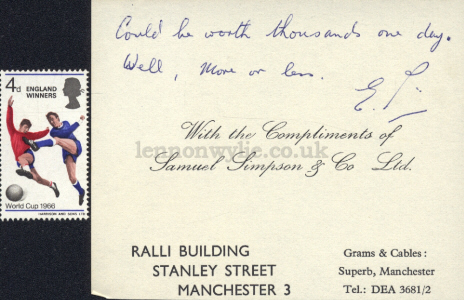 Could be worth thousands one day.
Well, more or less.
4d ENGLAND
WINNERS
World Cup 1966
HARRISON AND SONS LTD
With the Compliments of
lennonwylie.co.uk
Samuel Simpson & Co Ltd.
RALLI BUILDING
STANLEY STREET
MANCHESTER 3
Grams & Cables:
Superb, Manchester
Tel.: DEA 3681/2